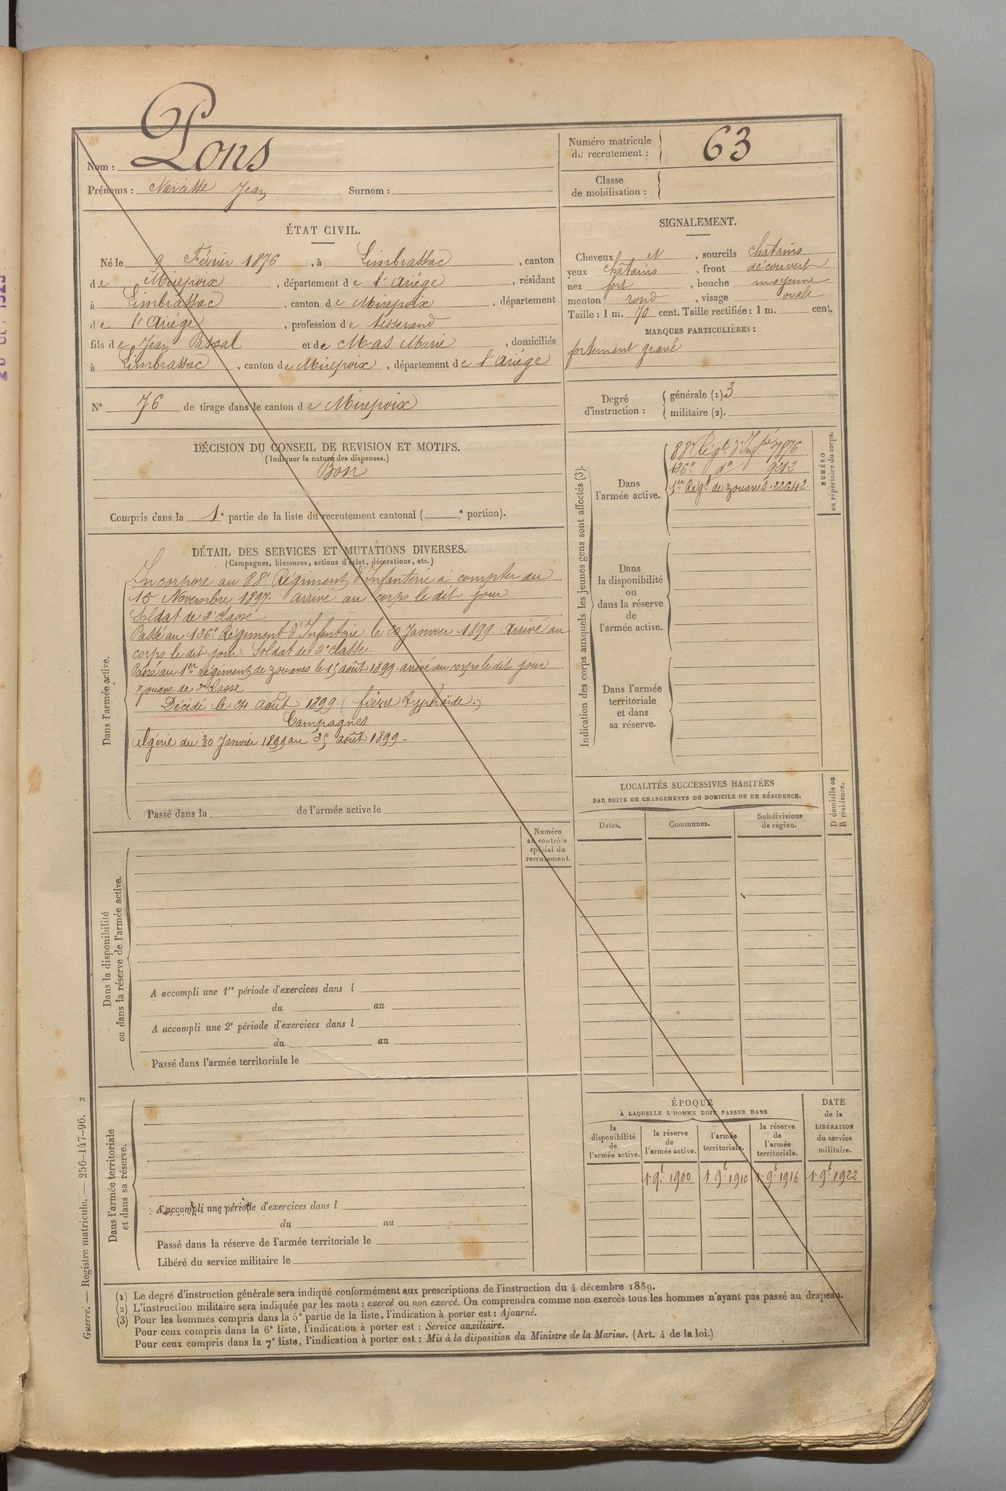 Nom : Pons
Prénoms : Narcisse Jean Surnom :
Numéro matricule du recrutement : 63
Classe de mobilisation :
ÉTAT CIVIL.
Né le 9 Février 1876, à Limbrassac, canton
de Mirepoix, département de l'Ariège, résidant
à Limbrassac, canton de Mirepoix, département
de l'Ariège, profession de tisserand
fils de Jean Pascal et de Mas Marie, domiciliés
à Limbrassac, canton de Mirepoix, département de l'Ariége
N° 76 de tirage dans le canton de Mirepoix
SIGNALEMENT.
Cheveux N, sourcils châtains
yeux châtains, front découvert
nez fort, bouche moyenne
menton rond, visage ovale
Taille : 1 m. 70 cent. Taille rectifiée : 1 m. cent.
MARQUES PARTICULIÈRES :
fortement gravé
Degré d'instruction : générale (1) 3
militaire (2).
DÉCISION DU CONSEIL DE REVISION ET MOTIFS.
(Indiquer la nature des dispenses.)
Bon
Compris dans la 1e partie de la liste du recrutement cantonal ( e portion).
DÉTAIL DES SERVICES ET MUTATIONS DIVERSES.
(Campagnes, blessures, actions d'éclat, décorations, etc.)
Dans l'armée active.
Incorporé au 88e Régiment d'Infanterie à compter du
15 Novembre 1897. arrivé au corps le dit jour
Soldat de 2e classe
Passé au 136e Régiment d'Infanterie le Janvier 1899. Arrivé au
corps le dit jour. Soldat de 2e classe.
Passé au 1er Régiment de zouaves le 15 août 1899. arrivé au corps le dit jour
zouave de 2e classe
Décédé le 24 août 1899 (fièvre typhoïde.)
Campagnes
Algérie du 30 Janvier 1899 au août 1899.
Passé dans la de l'armée active le
Indication des corps auxquels les jeunes gens sont affectés (3).
NUMÉRO au répertoire du corps.
Dans l'armée active.
88e Régt d'Infie 7876
136e do 9242
1er Régt de zouaves. 22642
Dans la disponibilité ou dans la réserve de l'armée active.
Dans l'armée territoriale et dans sa réserve.
LOCALITÉS SUCCESSIVES HABITÉES
PAR SUITE DE CHANGEMENTS DE DOMICILE OU DE RÉSIDENCE.
D domicile ou R résidence.
Dates. Communes. Subdivisions de région.
Numéro au contrôle spécial du recrutement.
Dans la disponibilité ou dans la réserve de l'armée active.
A accompli une 1re période d'exercices dans l
du au
A accompli une 2e période d'exercices dans l
du au
Passé dans l'armée territoriale le
Dans l'armée territoriale et dans sa réserve.
A accompli une période d'exercices dans l
du au
Passé dans la réserve de l'armée territoriale le
Libéré du service militaire le
ÉPOQUE
À LAQUELLE L'HOMME DOIT PASSER DANS
la disponibilité de l'armée active.
la réserve de l'armée active.
l'armée territoriale.
la réserve de l'armée territoriale.
DATE de la LIBÉRATION du service militaire.
1 9t 1900 1 9t 1910 1 9t 1916 1 9t 1922
(1) Le degré d'instruction générale sera indiqué conformément aux prescriptions de l'instruction du 4 décembre 1889.
(2) L'instruction militaire sera indiquée par les mots : exercé ou non exercé. On comprendra comme non exercés tous les hommes n'ayant pas passé au drapeau.
(3) Pour les hommes compris dans la 5e partie de la liste, l'indication à porter est : Ajourné.
Pour ceux compris dans la 6e liste, l'indication à porter est : Service auxiliaire.
Pour ceux compris dans la 7e liste, l'indication à porter est : Mis à la disposition du Ministre de la Marine. (Art. 4 de la loi.)
Guerre. — Registre matricule. — 256-147-96. 2